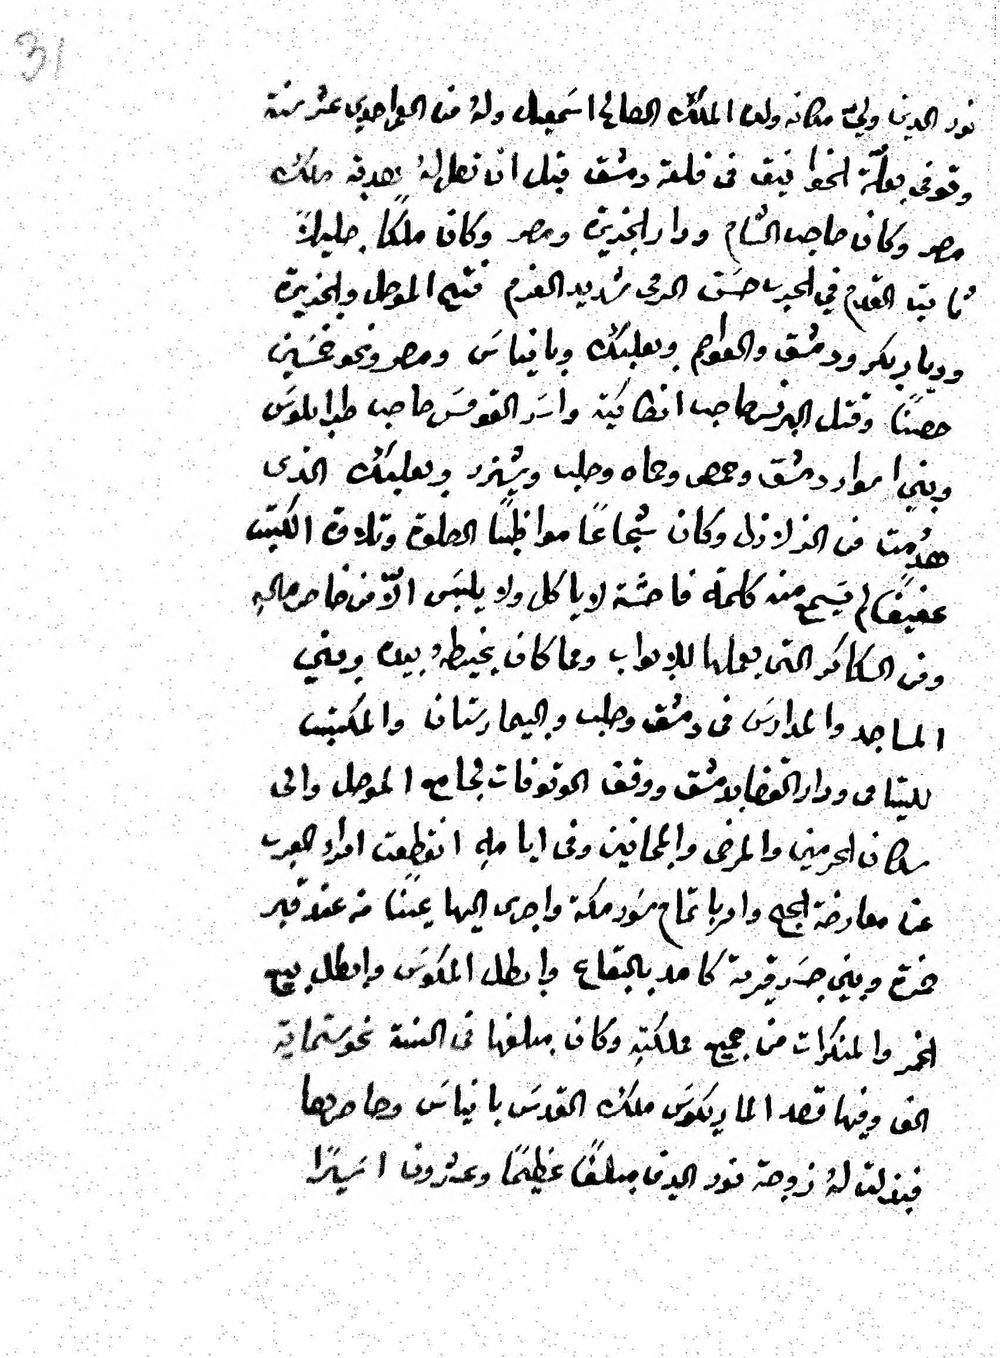 31
نور الدين وليّ مكانه ولده الملك الصالح اسمعيل وله من العمر احدي عشر سنة
وتوفي بعلّة الخوانيق في قلعة دمشق قبل ان تصل لهُ هدية ملك
مصر وكان صاحب الشام وديار الجزيرة ومصر وكان ملكًا جليلاً
ثابت القدم في الحرب حسَن الرمي شديد العزم فتح الموصل والجزيرة
وديار بكر ودمشق والعواصم وبعلبك وبانياس ومصر ونحو خمسَين
حصنًا وقتل البرنس صاحب انطاكية واسَر القومسَ صاحب طرابلوسَ
وبني اسوار دمشق وحمص وحماه وحلب وشيزر وبعلبك الذى
هدُمت من الزلازل وكان شجاعًا مواظبًا الصلوة وتلاوة الكتب
عفيفًا لم يسَمع منه كلمة فاحشة لا ياكل ولا يلبسَ الاّ من خاص مالهِ
ومن السكاكر التي يعملها للابواب ومما كان يخيطهُ بيده وبني
المساجد والمدارسَ في دمشق وحلب والبيمارستان والمكتب
لليتامى ودار القضا بدمشق ووقف الوقوفات لجامع الموصل والى
سكان الحرمين والمرضى والمجانين وفى ايامهِ انقطعت امراء العرب
عن معارضة الحج وامر باتمام سَور مكة واجرى اليها عينًا من عند قبر
حمزة وبني جسَر قرية كامد بالبقاع وابطل المكوسَ وابطل بيع
الخمر والمنكرات من جميع مملكتهِ وكان مبلغها في السنة نحو ستماية
الف وفيها قصد الماريكوسَ ملك القدسَ بانياسَ وحاصرها
فبذلت لهُ زوجة نور الدين مبلغًا عظيمًا وعشرون اسَيرًا